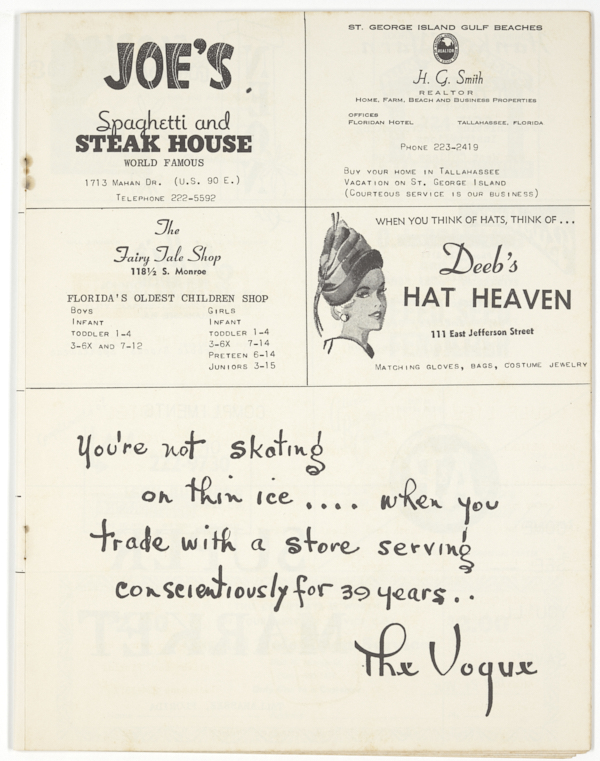 JOE'S
Spaghetti and
STEAK HOUSE
WORLD FAMOUS
1713 MAHAN DR. (U.S. 90 E.)
TELEPHONE 222-5592
ST. GEORGE ISLAND GULF BEACHES
REALTOR
H. G. Smith
REALTOR
HOME, FARM, BEACH AND BUSINESS PROPERTIES
OFFICES
FLORIDAN HOTEL TALLAHASSEE, FLORIDA
PHONE 223-2419
BUY YOUR HOME IN TALLAHASSEE
VACATION ON ST. GEORGE ISLAND
(COURTEOUS SERVICE IS OUR BUSINESS)
The
Fairy Tale Shop
118½ S. Monroe
FLORIDA'S OLDEST CHILDREN SHOP
BOYS
INFANT
TODDLER 1-4
3-6X AND 7-12
GIRLS
INFANT
TODDLER 1-4
3-6X 7-14
PRETEEN 6-14
JUNIORS 3-15
WHEN YOU THINK OF HATS, THINK OF...
Deeb's
HAT HEAVEN
111 East Jefferson Street
MATCHING GLOVES, BAGS, COSTUME JEWELRY
You're not skating
on thin ice .... when you
trade with a store serving
conscientiously for 39 years..
The Vogue